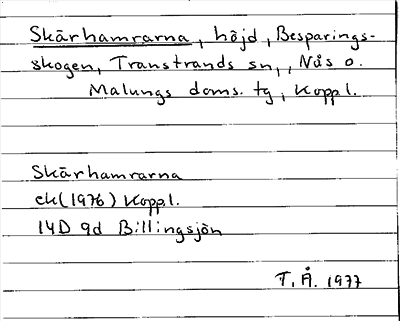 Skärhamrarna, höjd, Besparings-
skogen, Transtrands sn,, Nås o.
Malungs doms. tg, Koppl.
Skärhamrarna
ek(1976) Koppl.
14D 9d Billingsjön
T.Å. 1977